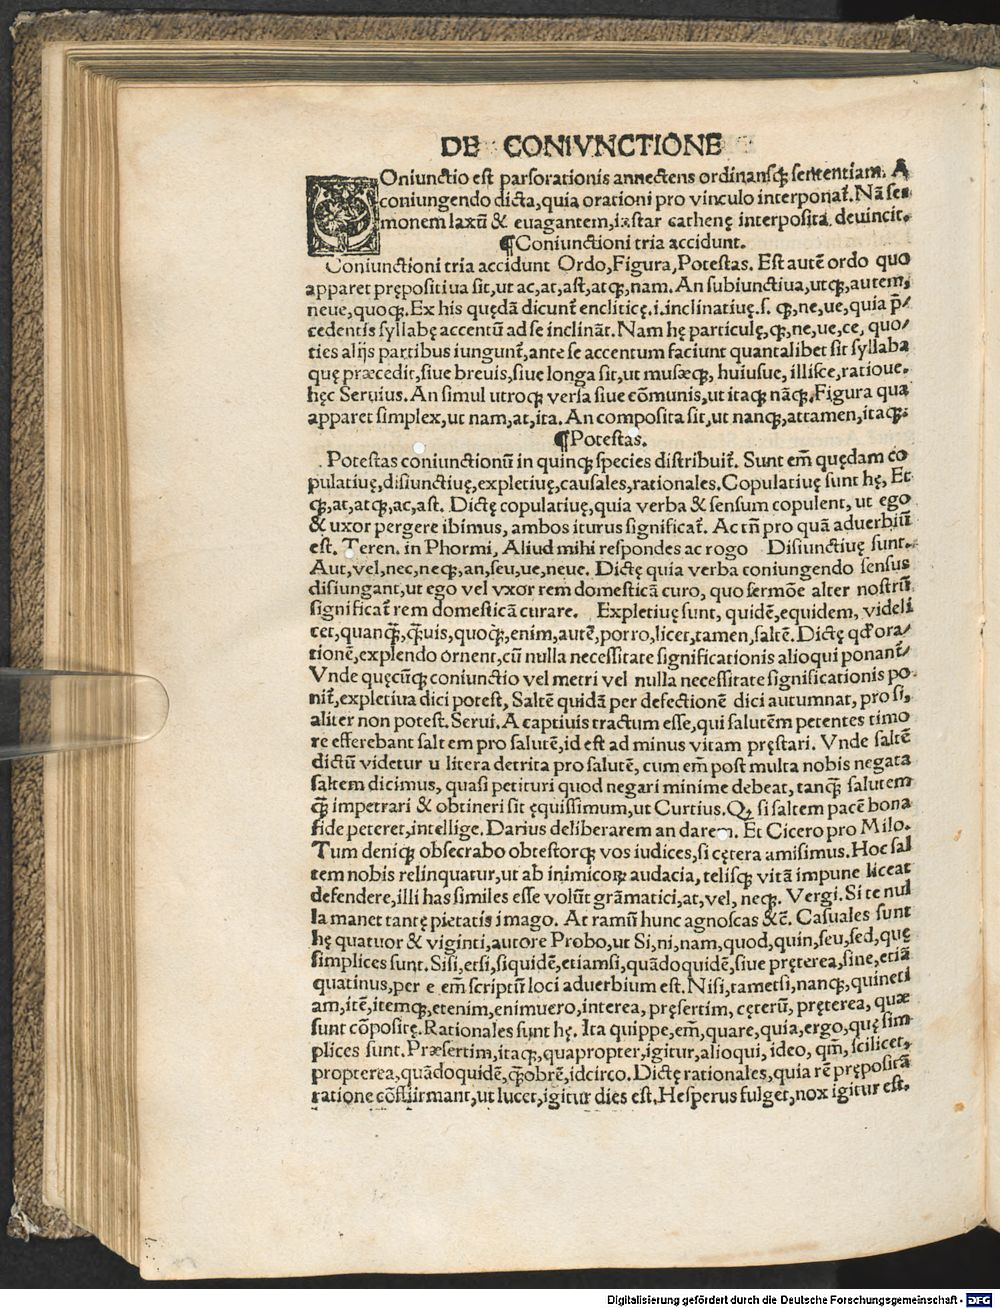 DE CONIVNCTIONE
COniunctio est parsorationis annectens ordinansq; sententiam. A
coniungendo dicta,quia orationi pro vinculo interponat̃. Nã ser
monem laxũ & euagantem,instar cathenę interposita deuincit.
¶Coniunctioni tria accidunt.
Coniunctioni tria accidunt Ordo,Figura,Potestas. Est autẽ ordo quo
apparet prępositiua sit,ut ac,at,ast,atq;,nam. An subiunctiua,utq;,autem,
neue,quoq;. Ex his quędã dicunt̃ encliticę.i.inclinatiuę.s. q;,ne,ue,quia p̃/
cedentis syllabę accentũ ad se inclinãt. Nam hę particulę,q;,ne,ue,ce, quo/
ties alijs partibus iungunt̃,ante se accentum faciunt quantalibet sit syllaba
quę præcedit,siue breuis,siue longa sit,ut musæq;, huiusue, illisce,ratioue.
hęc Seruius. An simul utroq; versa siue cõmunis,ut itaq; nãq;. Figura qua
apparet simplex,ut nam,at,ita. An composita sit,ut nanq;,attamen,itaq;.
¶Potestas.
Potestas coniunctionũ in quinq; species distribuit̃. Sunt em̃ quędam co
pulatiuę,disiunctiuę,expletiuę,causales,rationales.Copulatiuę sunt hę, Et
q;,at,atq;,ac,ast. Dictę copulatiuę,quia verba & sensum copulent, ut ego
& uxor pergere ibimus, ambos iturus significat̃. Ac tñ pro quã aduerbiũ
est. Teren. in Phormi, Aliud mihi respondes ac rogo Disiunctiuę sunt.
Aut,vel,nec,neq;,an,seu,ue,neue. Dictę quia verba coniungendo sensus
disiungant,ut ego vel vxor rem domesticã curo, quo sermõe alter nostrũ
significat̃ rem domesticã curare. Expletiuę sunt, quidẽ,equidem, videli
cet,quanq̃;,q̃;uis,quoq̃;,enim,autẽ,porro,licet,tamen,saltẽ. Dictę qđ ora/
tionẽ,explendo ornent,cũ nulla necessitate significationis alioqui ponant̃/
Vnde quęcũq; coniunctio vel metri vel nulla necessitate significationis po
nit̃,expletiua dici potest, Saltẽ quidã per defectionẽ dici autumnat, pro si,
aliter non potest. Serui. A captiuis tractum esse,qui salutẽm petentes timo
re efferebant salt em pro salutẽ,id est ad minus vitam pręstari. Vnde saltẽ
dictũ videtur u litera detrita pro salutẽ, cum em̃ post multa nobis negata
saltem dicimus, quasi petituri quod negari minime debeat, tanq;̃ salutem
q;̃ impetrari & obtineri sit ęquissimum,ut Curtius. Q; si saltem pacẽ bona
fide peteret,intellige. Darius deliberarem an darem. Et Cicero pro Milo.
Tum deniq; obsecrabo obtestorq; vos iudices,si cętera amisimus. Hoc sal
tem nobis relinquatur,ut ab inimicoꝝ audacia, telisq; vitã impune liceat
defendere, illi has similes esse volũt grãmatici,at,vel, neq;. Vergi. Si te nul
la manet tantę pietatis imago. At ramũ hunc agnoscas &c̃. Casuales sunt
hę quatuor & viginti,autore Probo,ut Si,ni,nam,quod,quin,seu,sed,quę
simplices sunt. Sisi,etsi,siquidẽ,etiamsi,quãdoquidẽ,siue pręterea,sine,etiã
quatinus,per e em̃ scriptũ loci aduerbium est. Nisi,tametsi,nanq;,quineti
am,itẽ,itemq;,etenim,enimuero,interea, pręsertim, cęterũ, pręterea, quæ
sunt cõpositę. Rationales sunt hę. Ita quippe,em̃, quare,quia,ergo,quę sim
plices sunt. Præsertim,itaq;,quapropter,igitur,alioqui, ideo, qm̃, scilicet,
propterea,quãdoquidẽ,q;̃obrẽ,idcirco. Dictę rationales,quia rẽ prępositã
ratione cõfirmant,ut lucet,igitur dies est. Hesperus fulget,nox igitur est.
Digitalisierung gefördert durch die Deutsche Forschungsgemeinschaft - DFG